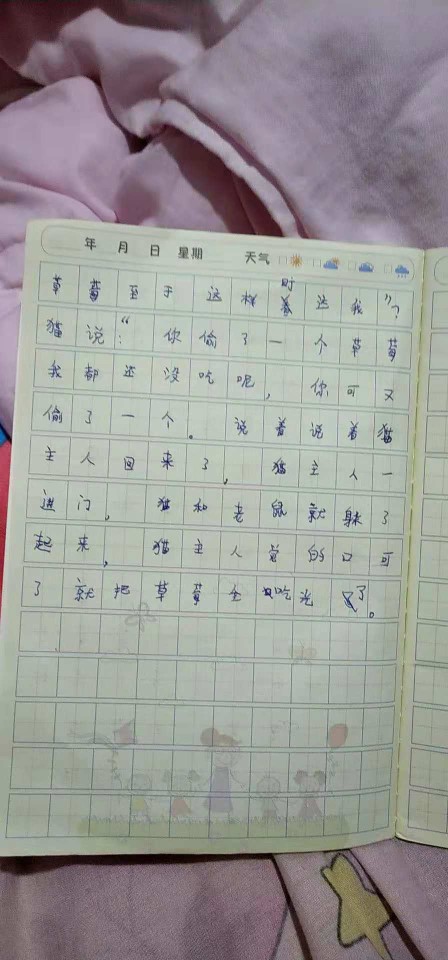 年 月 日 星期 天气
草莓至于这样盯着这我”?
猫说:“你偷了一个草莓
我都还没吃呢,你可又
偷了一个。说着说着猫
主人回来了,猫主人一
进门,猫和老鼠就躲了
起来,猫主人觉的口可
了就把草莓全吃光了。